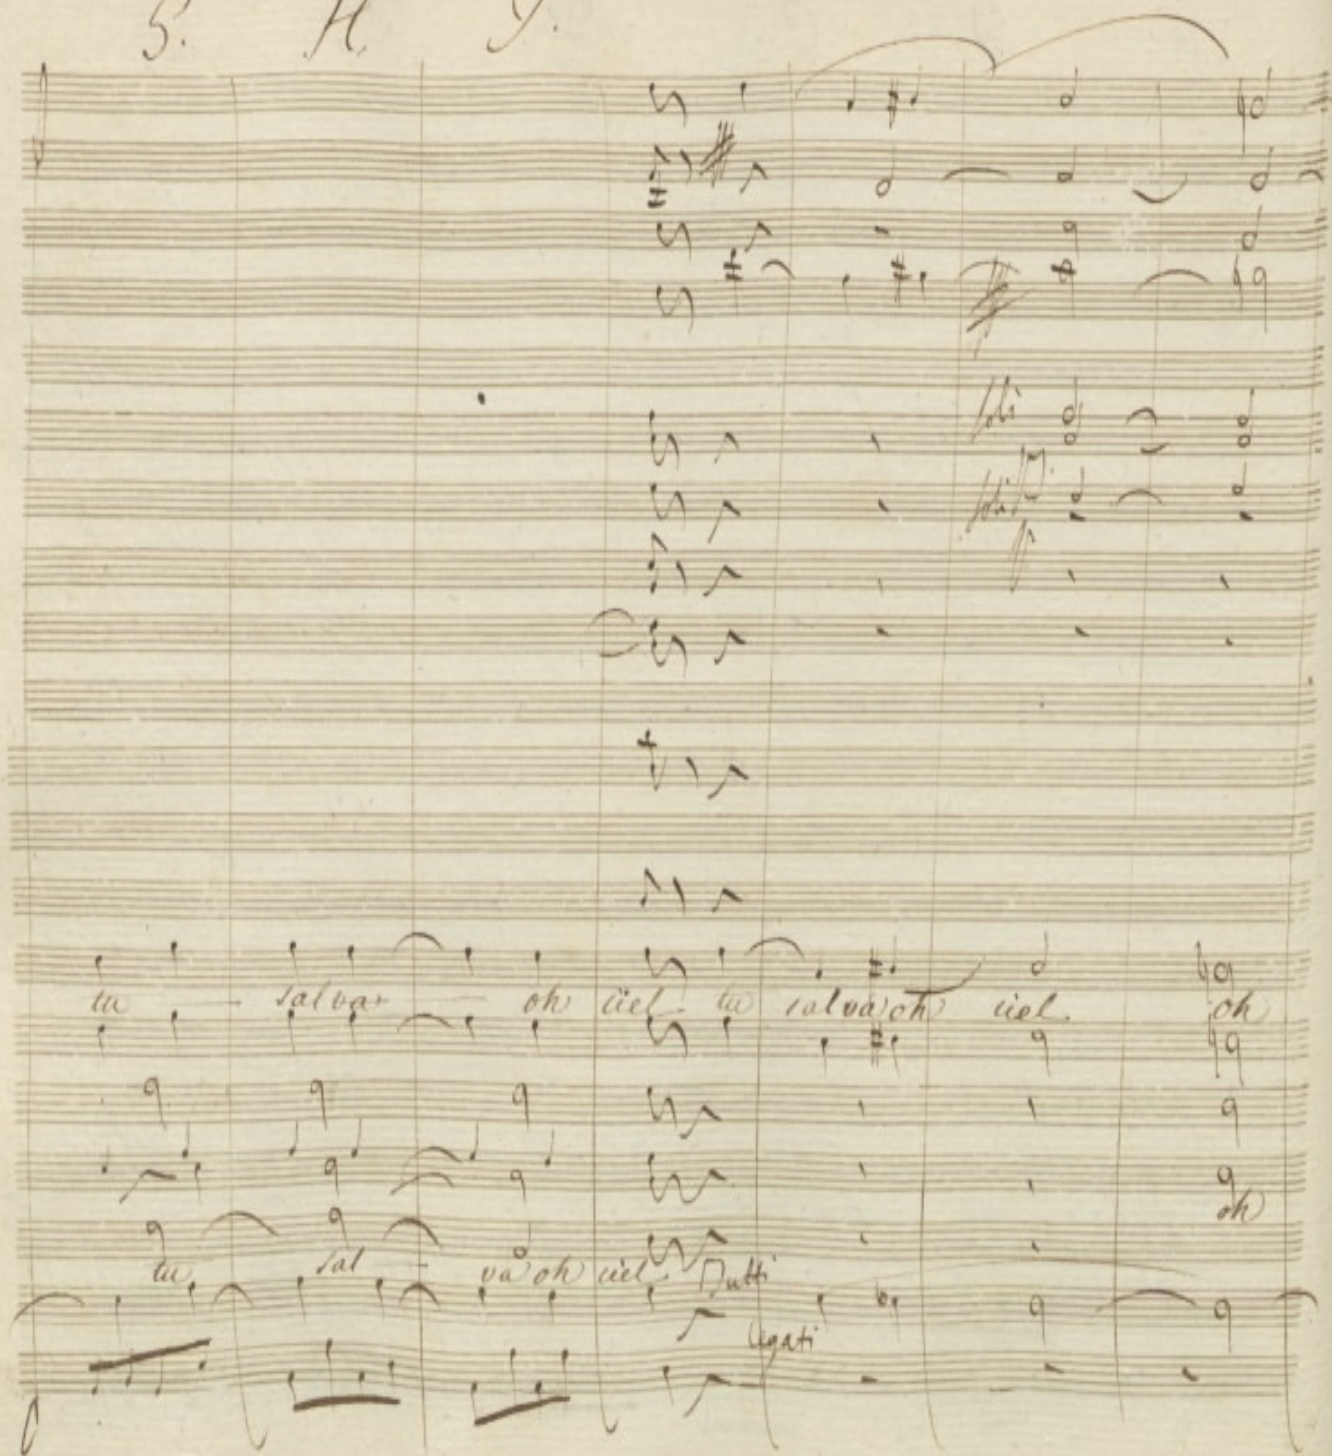 G. H. J.
soli
soli
tu salva oh ciel tu salva oh ciel oh
oh
tu sal va oh ciel Tutti
legati